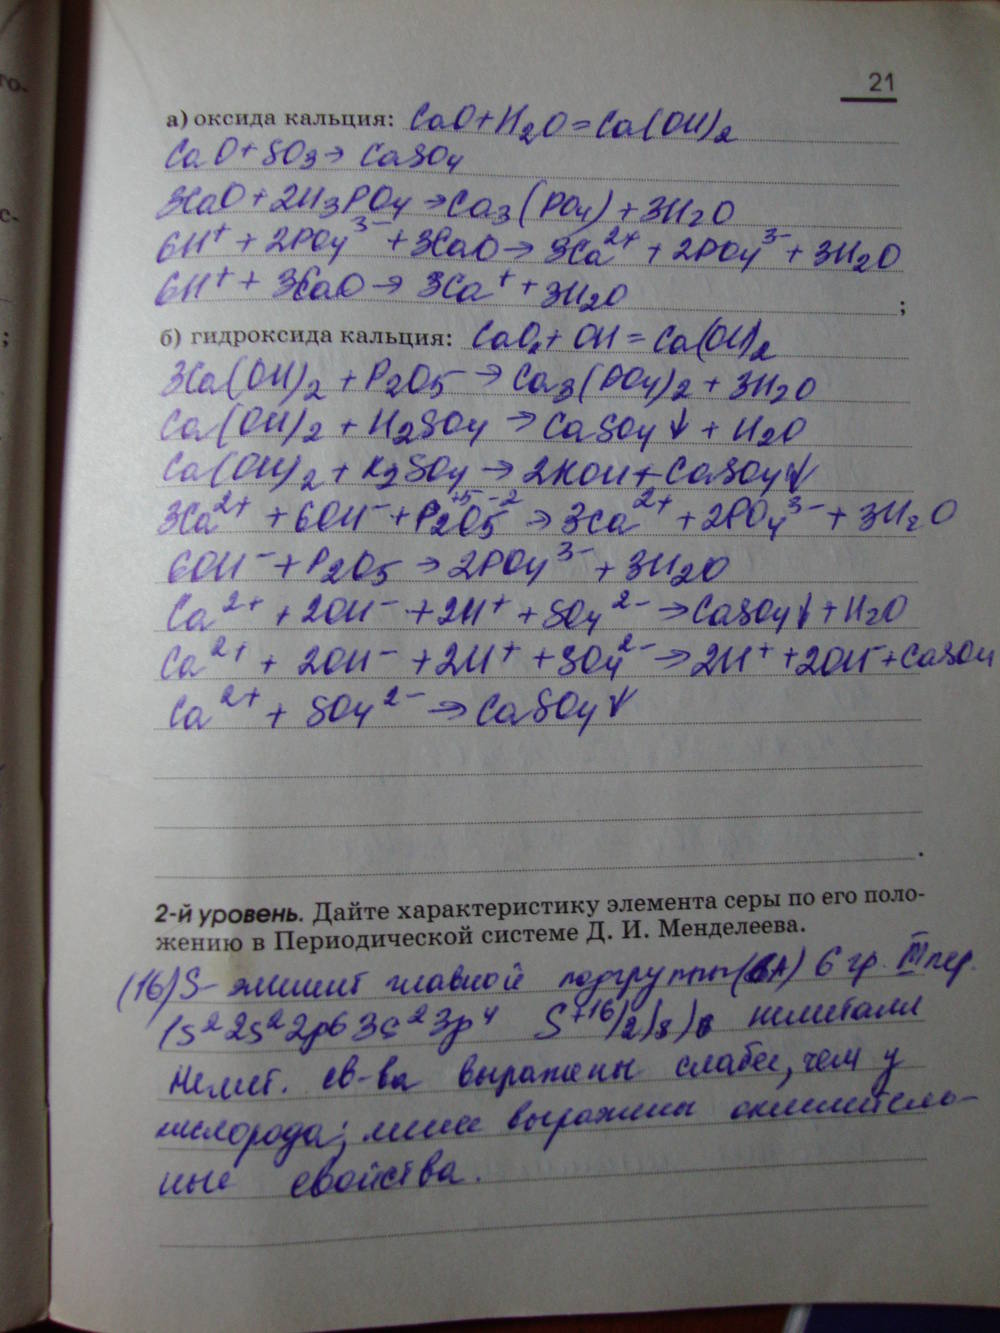 21
а) оксида кальция: CaO+H₂O=Ca(OH)₂
CaO+SO₃→ CaSO₄
3CaO+2H₃PO₄→Ca₃(PO₄)+3H₂O
6H⁺ + 2PO₄³⁻ +3CaO→ 3Ca²⁺ + 2PO₄³⁻ + 3H₂O
6H⁺ + 3CaO → 3Ca⁺ + 3H₂O
;
б) гидроксида кальция: CaO + OH = Ca(OH)₂
3Ca(OH)₂ + P₂O₅ → Ca₃(PO₄)₂ + 3H₂O
Ca(OH)₂ + H₂SO₄ → CaSO₄↓ + H₂O
Ca(OH)₂ + K₂SO₄ → 2KOH + CaSO₄↓
3Ca²⁺ + 6OH⁻ + P₂⁺⁵O₅⁻² → 3Ca²⁺ + 2PO₄³⁻ + 3H₂O
6OH⁻ + P₂O₅ → 2PO₄³⁻ + 3H₂O
Ca²⁺ + 2OH⁻ + 2H⁺ + SO₄²⁻ → CaSO₄↓ + H₂O
Ca²⁺ + 2OH⁻ + 2H⁺ + SO₄²⁻ → 2H⁺ + 2OH⁻ + CaSO₄
Ca²⁺ + SO₄²⁻ → CaSO₄↓
.
2-й уровень. Дайте характеристику элемента серы по его поло-
жению в Периодической системе Д. И. Менделеева.
(16) S- элемент главной подгруппы (6А) 6 гр. III пер.
1s² 2s² 2p6 3s² 3p⁴ S⁺¹⁶)2)8)6 неметалл
Немет. св-ва выражены слабее, чем у
кислорода; менее выражены окислитель-
ные свойства.